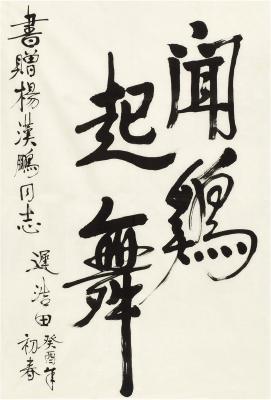 闻鷄
起舞
書贈楊漢鵬同志
遲浩田癸酉年
初春